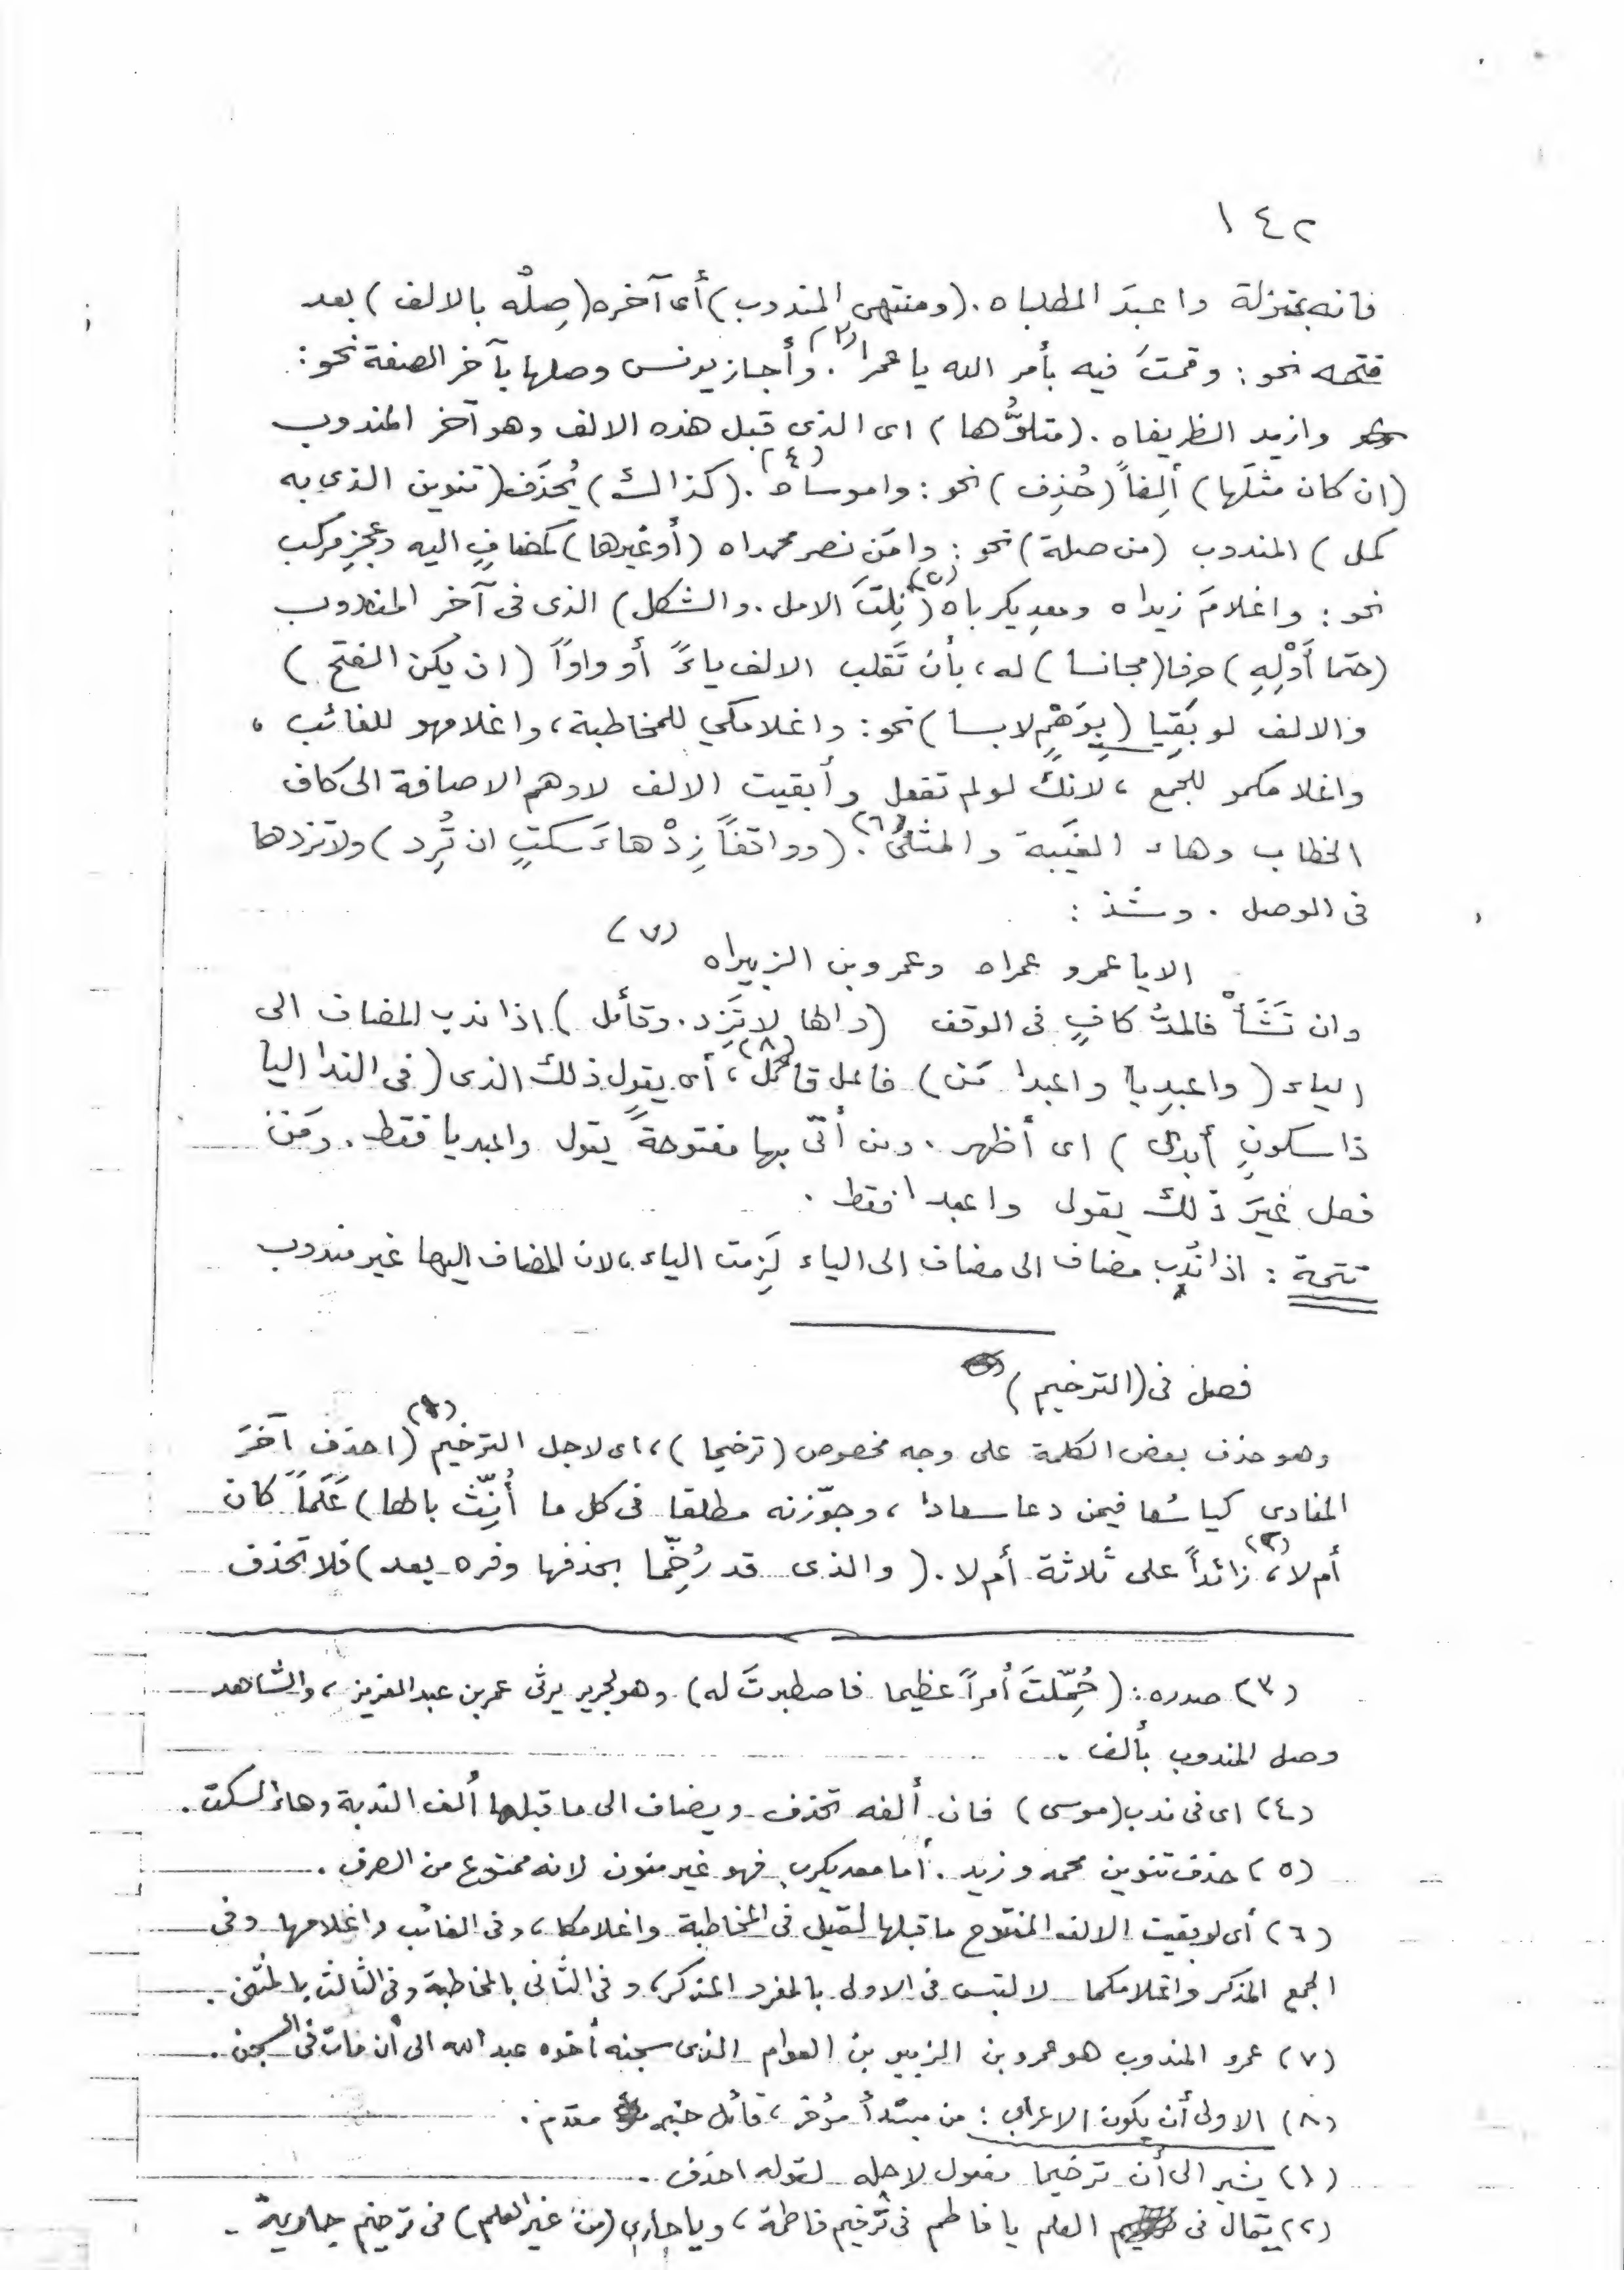 ١٤٢
فانه بمنزلة واعبدَ المطلباه. (ومنتهى المندوب) أى آخره (صِلْه بالالف) بعد
فتحه نحو: وقمتَ فيه بأمر الله يا عمرا (٣). وأجاز يونس وصلها بآخر الصفة نحو:
وازيد الظريفاه. (متلوُّها) اى الذى قبل هذه الالف وهو آخر المندوب
(ان كان مثلَها) أَلِفاً (حُذِف) نحو: واموساه (٤). (كذاك) يُحذَف (تنوين الذى به
كمل) المندوب (من صلة) نحو: وامَن نصر محمداه (أو غيرها) كمضافٍ اليه وعجزِ مركب
نحو: واغلامَ زيداه ومعديكرباه (٥) (نِلتَ الامل. والشكل) الذى فى آخر المندوب
(حتما أَوْلِهِ) حرفا (مجانسا) له، بأن تَقلب الالف ياءً أو واواً (ان يكن الفتح)
والالف لو بَقِيا (بِوَهْمٍ لابسا) نحو: واغلامكي للمخاطبة، واغلامهو للغائب،
واغلامكمو للجمع، لانك لو لم تفعل وأبقيت الالف لاوهم الاضافة الى كاف
الخطاب وهاء الغَيبة والمثنى (٦). (وواقفاً زِدْ هاءَ سكتٍ ان تُرِد) ولا تزدها
فى الوصل. وشذ:
الا يا عمرو عمراه وعمرو بن الزبيراه (٧)
(وان تَشَأْ فالمدُّ كافٍ فى الوقف (والها لا تَزِد. وقائل) اذا ندب المضاف الى
الياء (واعبدِيا واعبدا مَن) فاعل قائل (٨)، أى يقول ذلك الذى (فى الندا اليا
ذا سكونٍ أبدى) اى أظهر. ومن أتى بها مفتوحةً يقول واعبديا فقط. ومَن
فعل غيرَ ذلك يقول واعبدا فقط.
تتمة: اذا نُدِب مضاف الى مضاف الى الياء لَزِمت الياء، لان المضاف اليها غير مندوب
فصل فى (الترخيم)
وهو حذف بعض الكلمة على وجه مخصوص (ترخيما)، اى لاجل الترخيم (١) (احذف آخرَ
المنادى كيا سُعا فيمن دعا سعادا، وجوّزنه مطلقا فى كل ما أُنِّث بالها) عَلَماً كان
أم لا (٢)، زائداً على ثلاثة أم لا. (والذى قد رُخِّما بحذفها وفره بعد) فلا تحذف
(٣) صدره: (حُمِّلتَ أمراً عظيما فاصطبرتَ له) وهو لجرير يرثى عمر بن عبد العزيز، والشاهد
وصل المندوب بألف.
(٤) اى فى ندب (موسى) فان ألفه تحذف ويضاف الى ما قبلها ألف الندبة وهاء السكت.
(٥) حذف تنوين محمد وزيد. أما معديكرب فهو غير منون لانه ممنوع من الصرف.
(٦) أى لو بقيت الالف المفتوح ما قبلها لقيل فى المخاطبة واغلامكا، وفى الغائب واغلامها وفى
الجمع المذكر واغلامكما لالتبس فى الاولى بالمفرد المذكر، وفى الثانى بالمخاطبة وفى الثالث بالمثنى.
(٧) عمرو المندوب هو عمرو بن الزبير بن العوام الذى سجنه أخوه عبد الله الى أن مات فى السجن.
(٨) الاولى أن يكون الاعراب: من مبتدأ مؤخر، قائل خبر مقدم.
(١) يشير الى أن ترخيما مفعول لاجله لقوله احذف.
(٢) يقال فى العلم يا فاطم فى ترخيم فاطمة، ويا جارى (من غير العلم) فى ترخيم جارية.